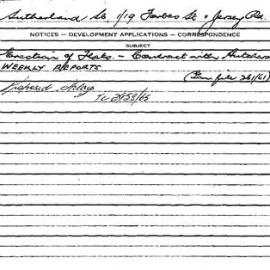 Sutherland St. 1/19 Forbes St & Jersey Rd.
NOTICES — DEVELOPMENT APPLICATIONS — CORRESPONDENCE
SUBJECT
Erection of Flats - Contract with Hutcherson
WEEKLY REPORTS
(Gen file 261/61)
TC 2953/65